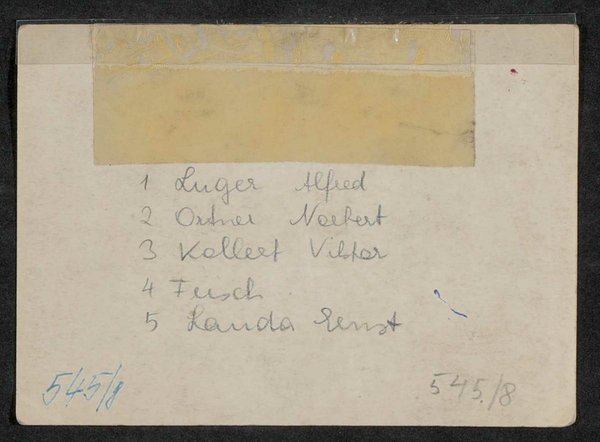 1 Luger Alfred
2 Ortner Norbert
3 Kollert Viktor
4 Frisch
5 Landa Ernst
545/8
545./8